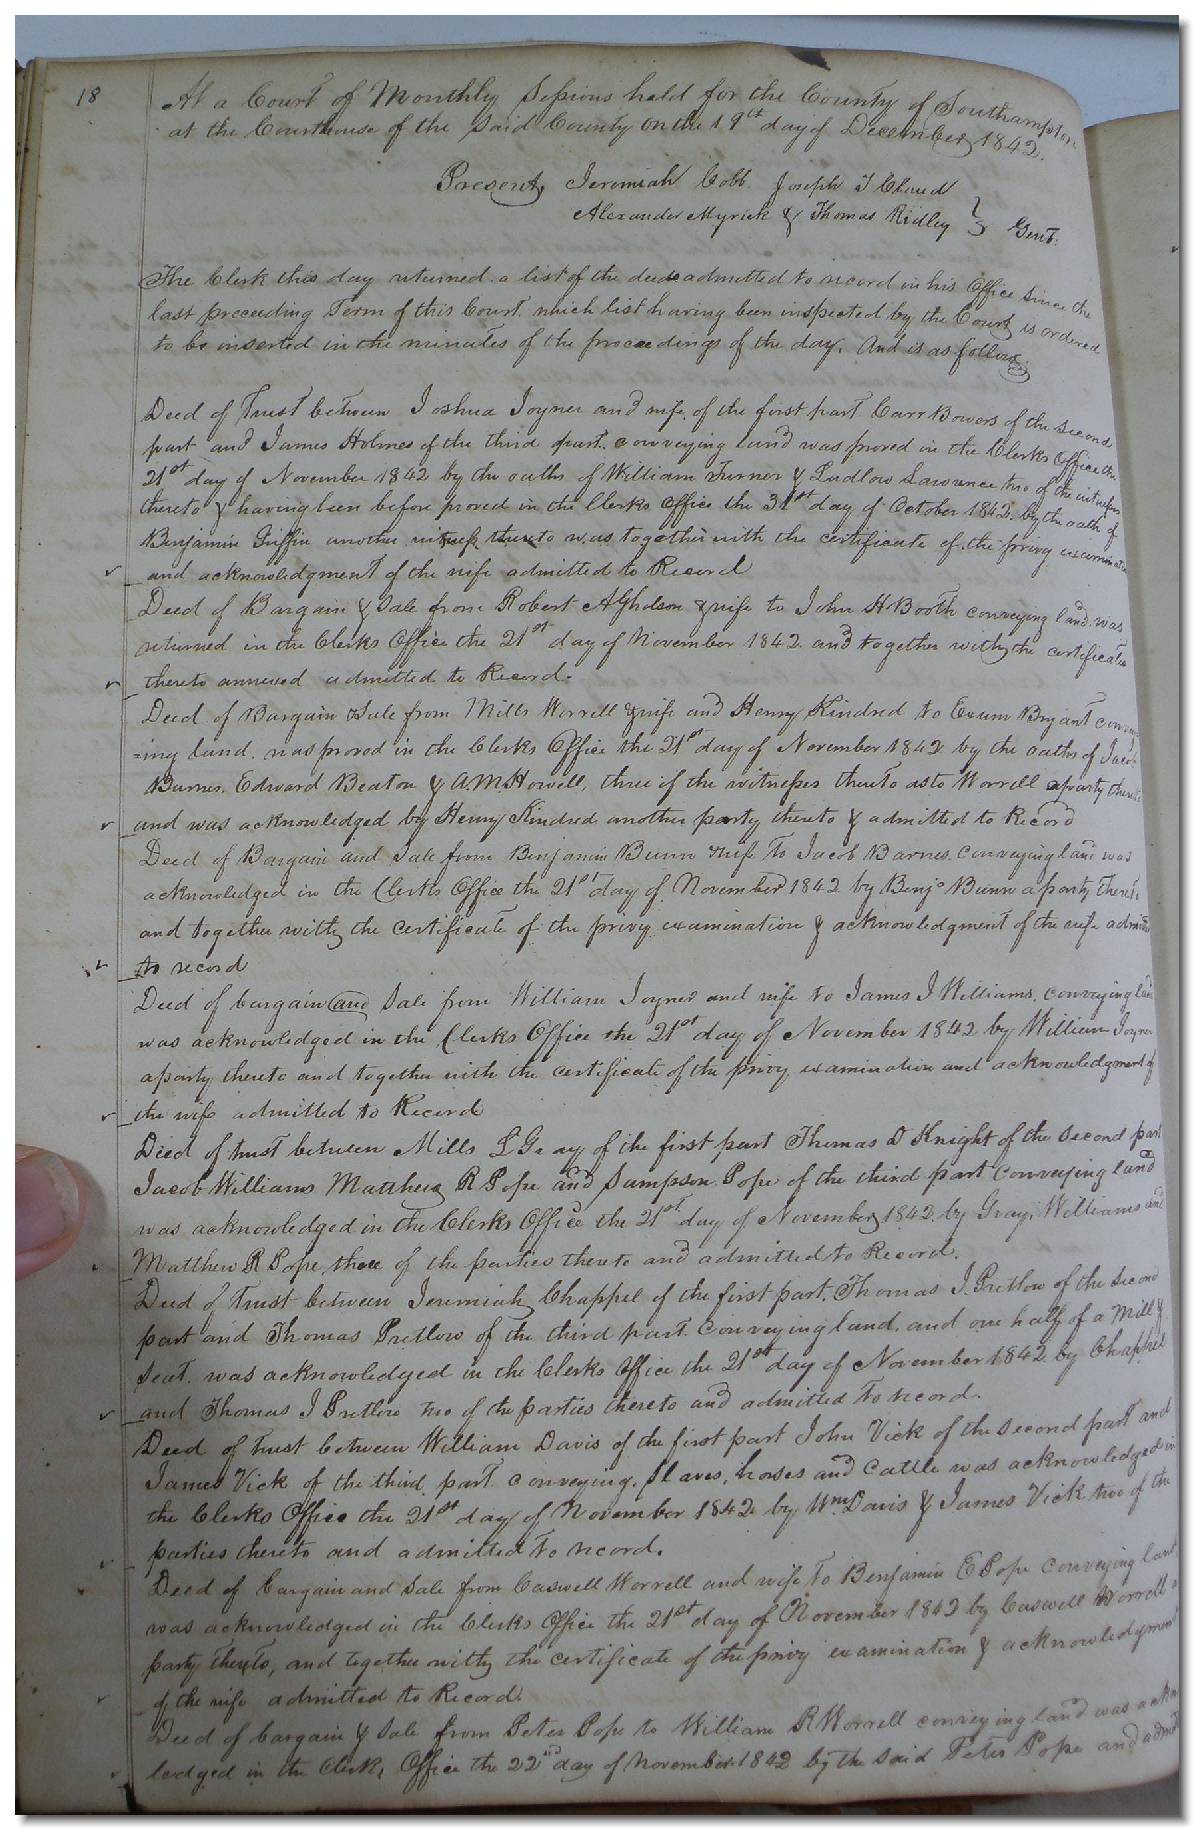 18
At a Court of Monthly Sessions held for the County of Southampton
at the Courthouse of the said County on the 19th day of December 1842.
Present, Jeremiah Cobb Joseph T Claud
Alexander Myrick & Thomas Ridley } Gent:
The Clerk this day returned a list of the deeds admitted to record in his Office since the
last preceeding Term of this Court which list having been inspected by the Court is ordered
to be inserted in the minutes of the proceedings of the day, And is as follows.
Deed of Trust between Joshua Joyner and wife of the first part Carr Bowers of the second
part and James Holmes of the third part conveying land was proved in the Clerks Office the
21st day of November 1842 by the oaths of William Turner & Ludlow Lawrence two of the witnesses
thereto & having been before proved in the Clerks Office the 31st day of October 1842 by the oath of
Benjamin Griffin another witness thereto was together with the certificate of the privy examination
and acknowledgment of the wife admitted to Record
Deed of Bargain & Sale from Robert A Gholson & wife to John H Booth conveying land was
returned in the Clerks Office the 21st day of November 1842 and together with the certificate
thereto annexed admitted to Record.
Deed of Bargain & Sale from Mills Worrell & wife and Henry Kindred to Exum Bryant convey
=ing land, was proved in the Clerks Office the 21st day of November 1842 by the oaths of Jacob
Barnes, Edward Beaton & A.M. Howell, three of the witnesses thereto as to Worrell a party thereto
and was acknowledged by Henry Kindred another party thereto & admitted to Record
Deed of Bargain and Sale from Benjamin Bunn & wife to Jacob Barnes conveying land was
acknowledged in the Clerks Office the 21st day of November 1842 by Benjn Bunn a party thereto
and together with the certificate of the privy examination & acknowledgment of the wife admitted
to record
Deed of bargain and Sale from William Joyner and wife to James J Williams, conveying land
was acknowledged in the Clerks Office the 21st day of November 1842 by William Joyner
a party thereto and together with the certificate of the privy examination and acknowledgment of
the wife admitted to Record
Deed of trust between Mills L Gray of the first part Thomas D Knight of the second part
Jacob Williams Matthew R Pope and Sampson Pope of the third part conveying land
was acknowledged in the Clerks Office the 21st day of November 1842 by Gray, Williams and
Matthew R Pope, three of the parties thereto and admitted to Record.
Deed of Trust between Jeremiah Chappel of the first part, Thomas J. Pretlow of the second
part and Thomas Pretlow of the third part conveying land, and one half of a Mill &
seat, was acknowledged in the Clerks Office the 21st day of November 1842 by Chappel
and Thomas J Pretlow two of the parties thereto and admitted to record.
Deed of trust between William Davis of the first part John Vick of the second part and
James Vick of the third part conveying, Slaves, horses and Cattle was acknowledged in
the Clerks Office the 21st day of November 1842 by Wm. Davis & James Vick two of the
parties thereto and admitted to record.
Deed of bargain and sale from Caswell Worrell and wife to Benjamin E Pope conveying land
was acknowledged in the Clerks Office the 21st day of November 1842 by Caswell Worrell a
party thereto, and together with the certificate of the privy examination & acknowledgment
of the wife admitted to Record.
Deed of bargain & sale from Peter Pope to William R Worrell conveying land was acknow
ledged in the Clerks Office the 22nd day of November 1842 by the said Peter Pope and admit